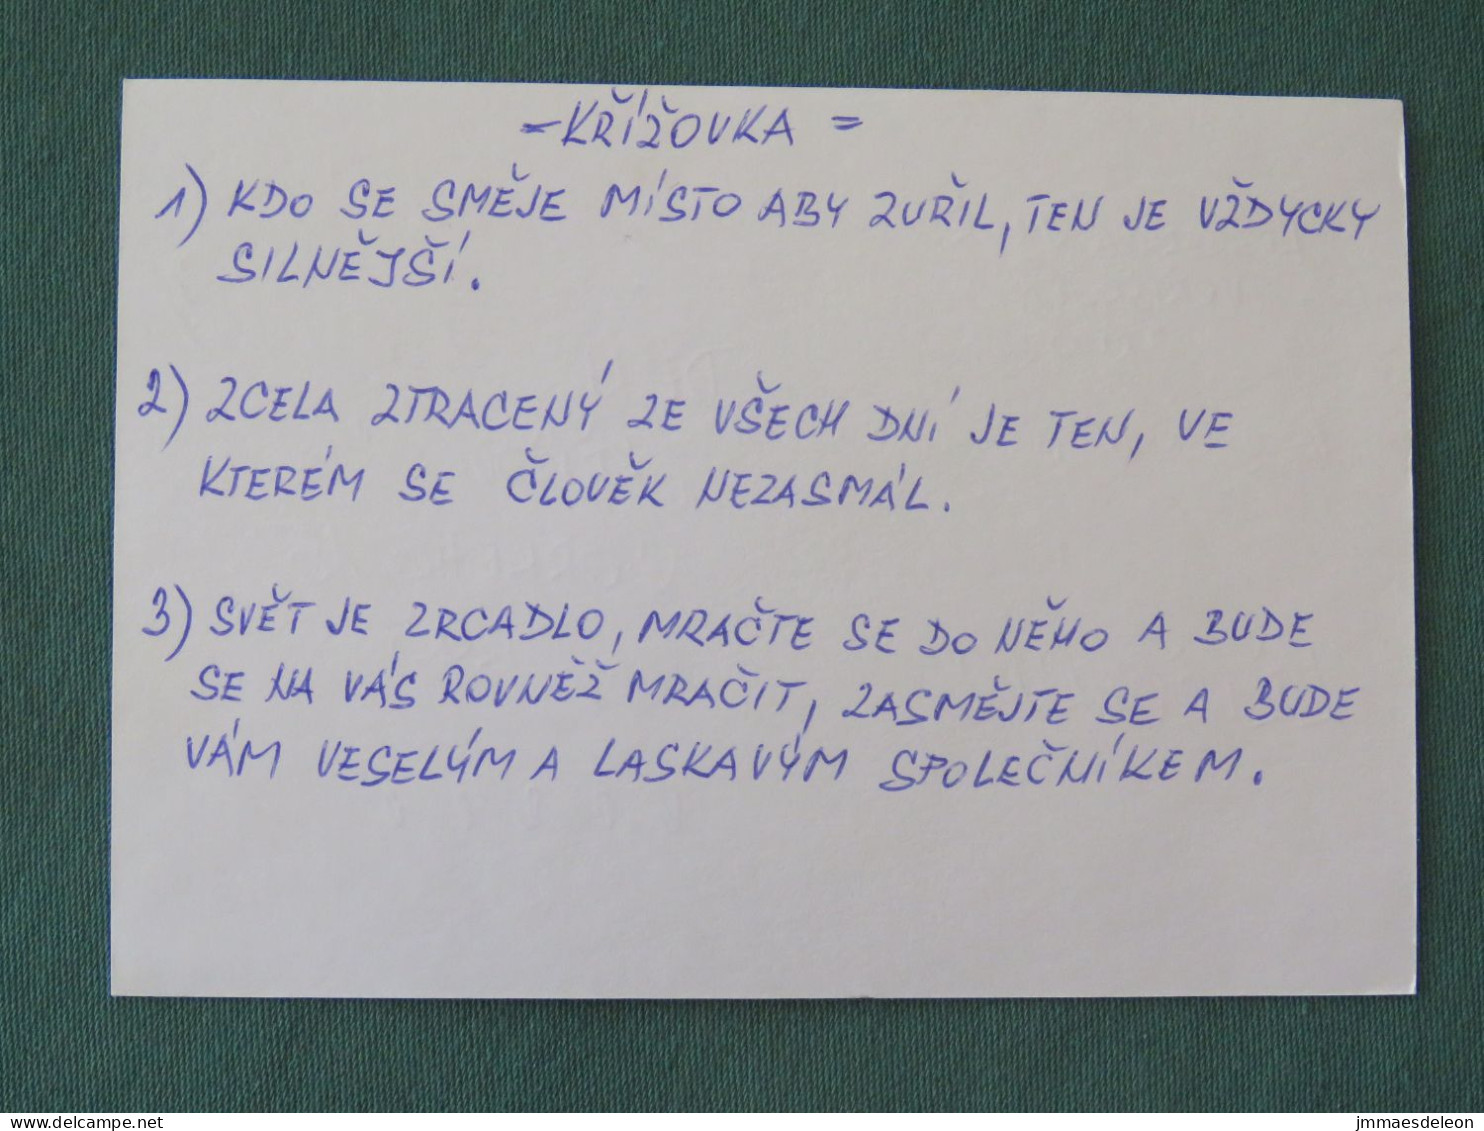 - KŘÍŽOVKA =
1) KDO SE SMĚJE MÍSTO ABY ZUŘIL, TEN JE VŽDYCKY
SILNĚJŠÍ.
2) ZCELA ZTRACENÝ ZE VŠECH DNÍ JE TEN, VE
KTERÉM SE ČLOVĚK NEZASMÁL.
3) SVĚT JE ZRCADLO, MRAČTE SE DO NĚHO A BUDE
SE NA VÁS ROVNĚŽ MRAČIT, ZASMĚJTE SE A BUDE
VÁM VESELÝM A LASKAVÝM SPOLEČNÍKEM.
www.delcampe.net
jmmaesdeleon